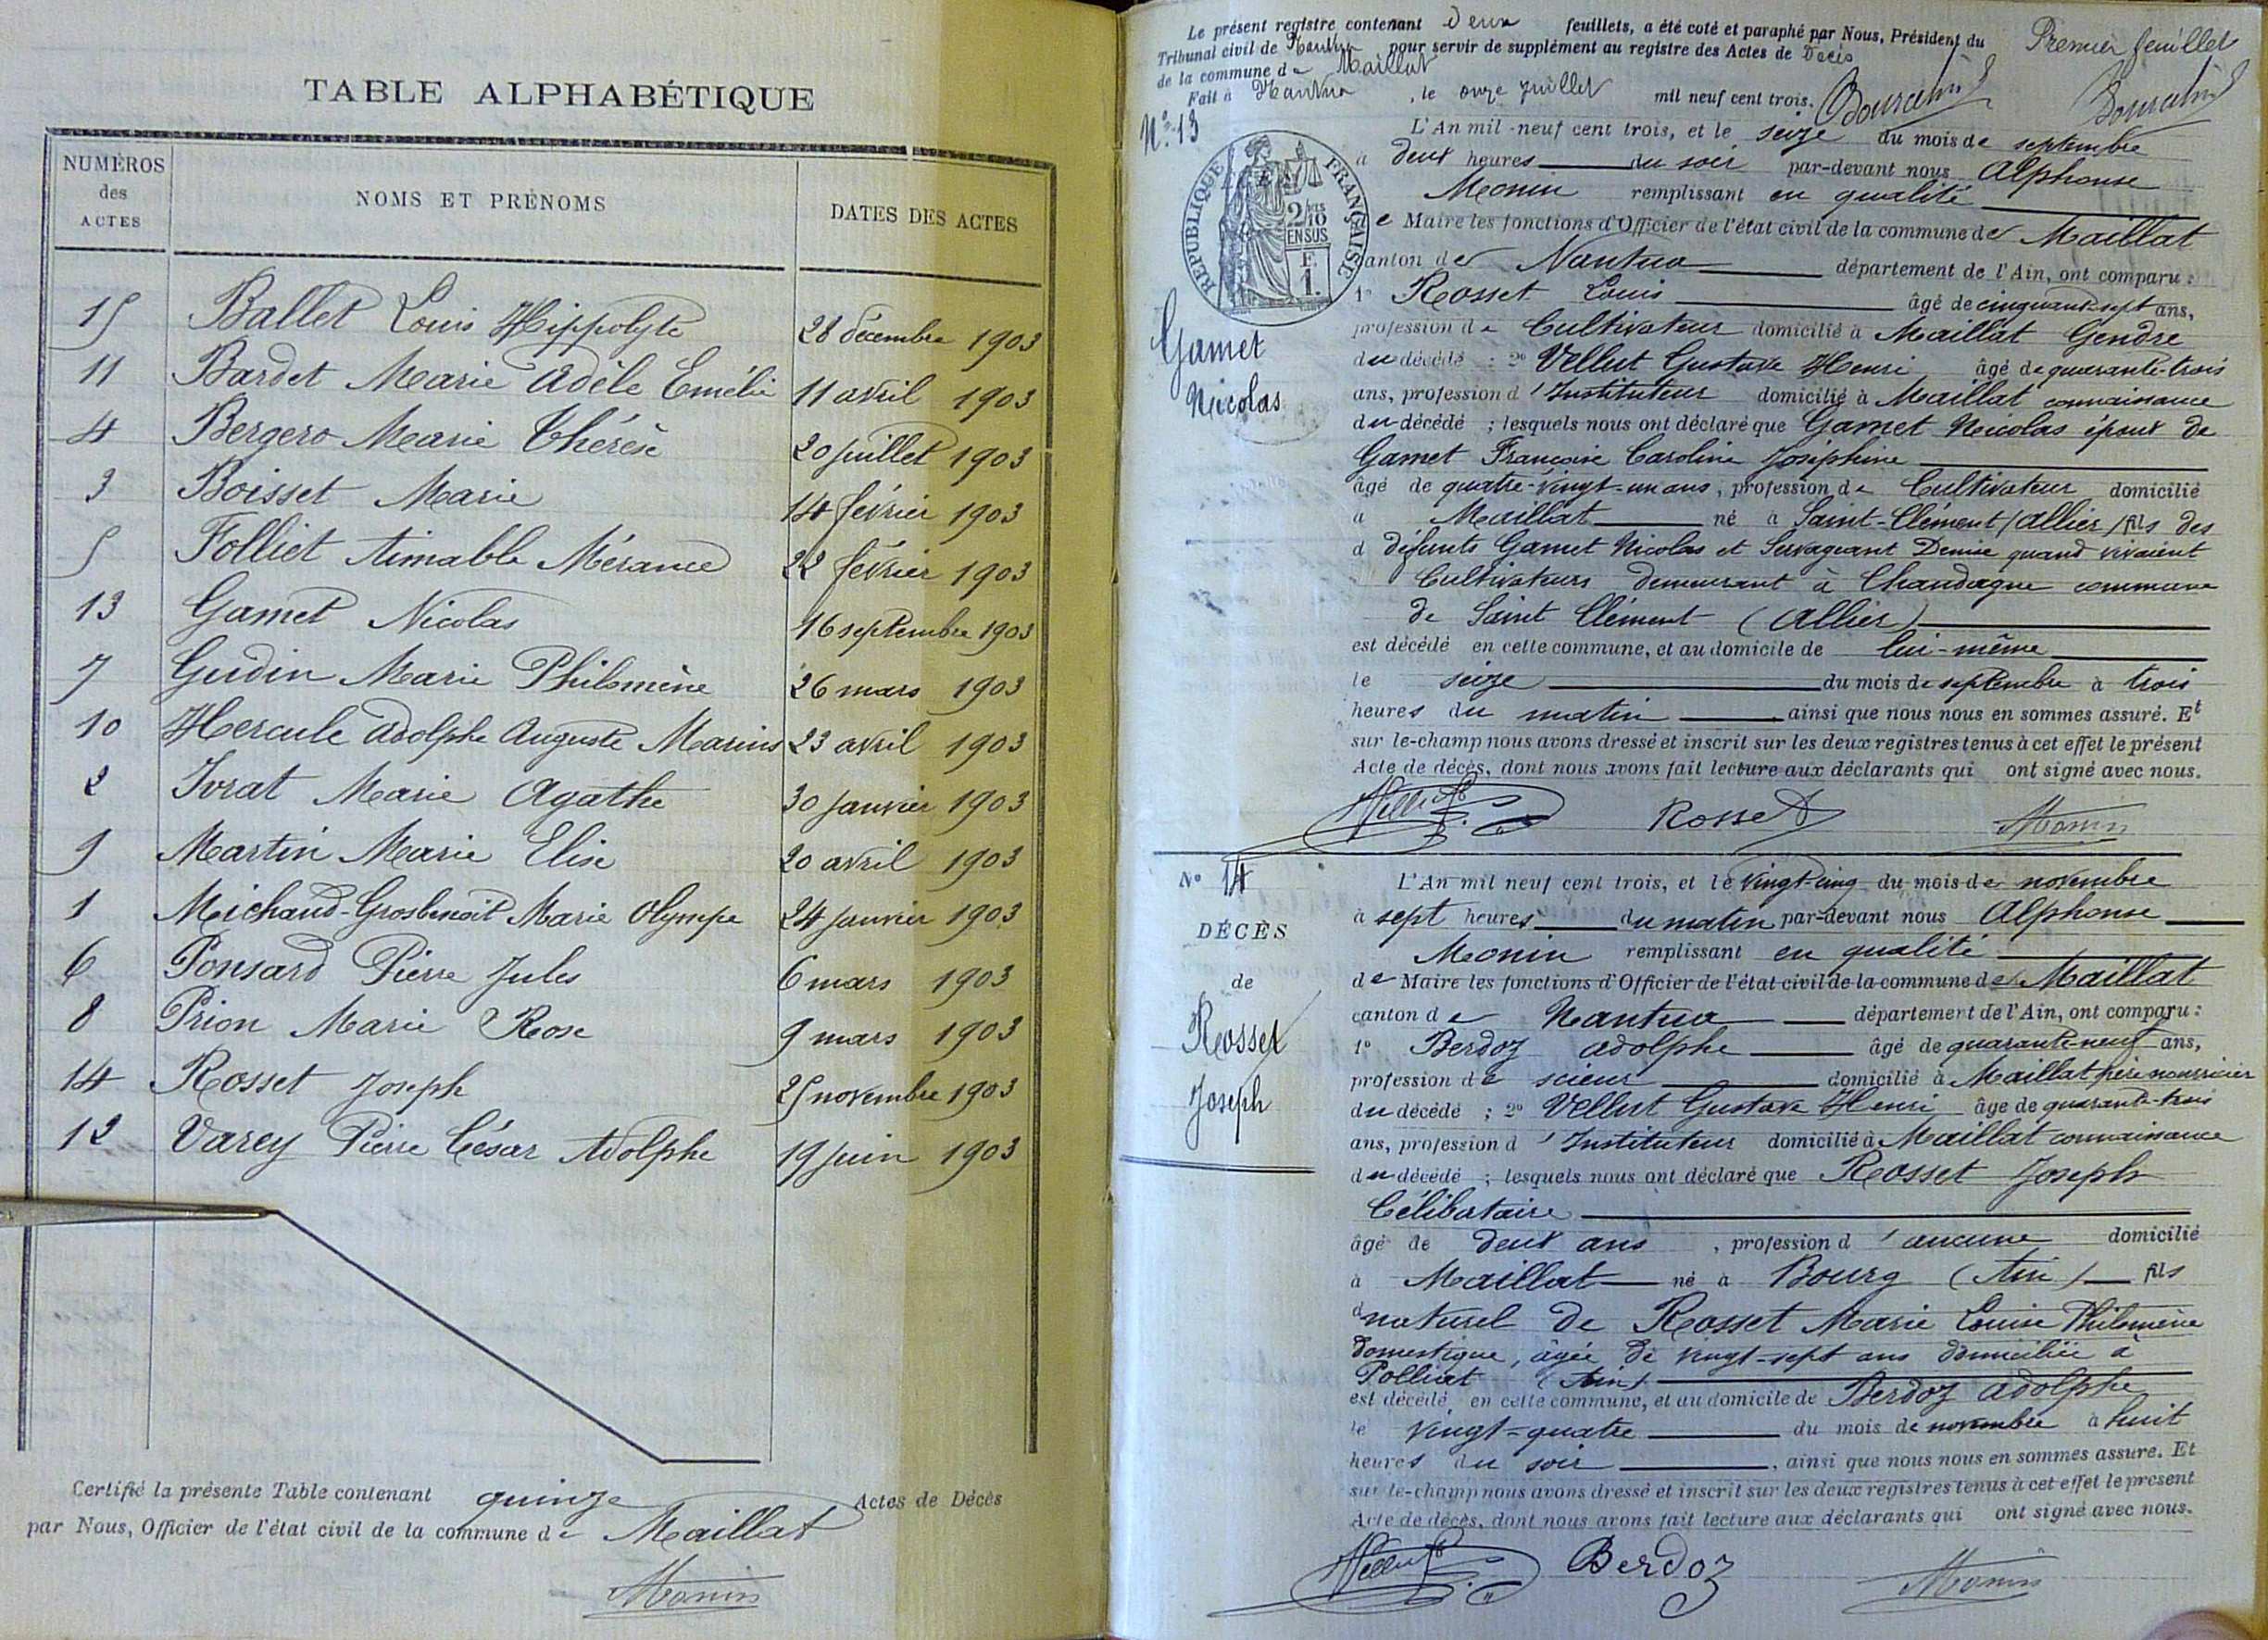 TABLE ALPHABÉTIQUE
NUMÉROS des ACTES
NOMS ET PRÉNOMS
DATES DES ACTES
15 Ballet Louis Hippolyte 28 décembre 1903
11 Bardet Marie Adèle Emélie 11 avril 1903
4 Bergero Marie Thérèse 20 juillet 1903
3 Boisset Marie 14 février 1903
5 Folliet Aimable Mérance 22 février 1903
13 Gamet Nicolas 16 septembre 1903
7 Gudin Marie Philomène 26 mars 1903
10 Hercule Adolphe Auguste Marius 23 avril 1903
2 Ivrat Marie Agathe 30 janvier 1903
9 Martin Marie Elise 20 avril 1903
1 Michaud-Grosbenoit Marie Olympe 24 janvier 1903
6 Ponsard Pierre Jules 6 mars 1903
8 Prion Marie Rose 9 mars 1903
14 Rosset Joseph 25 novembre 1903
12 Varey Pierre César Adolphe 19 juin 1903
Certifié la présente Table contenant quinze Actes de Décès
par Nous, Officier de l'état civil de la commune de Maillat
Monin
Le présent registre contenant deux feuillets, a été coté et paraphé par Nous, Président du
Premier feuillet
Tribunal civil de Nantua pour servir de supplément au registre des Actes de Décès
de la commune de Maillat
Fait à Nantua, le onze juillet mil neuf cent trois.
N° 13
L'An mil neuf cent trois, et le seize du mois de septembre
à deux heures du soir par-devant nous Alphonse
Monin remplissant en qualité
e Maire les fonctions d'Officier de l'état civil de la commune de Maillat
canton de Nantua département de l'Ain, ont comparu :
RÉPUBLIQUE FRANÇAISE
2/10 EN SUS
F. 1.
1° Rosset Louis âgé de cinquante-sept ans,
profession de Cultivateur domicilié à Maillat Gendre
Gamet
Nicolas
du décédé : 2° Vellut Gustave Henri âgé de quarante-trois
ans, profession d'Instituteur domicilié à Maillat connaissance
du décédé ; lesquels nous ont déclaré que Gamet Nicolas époux de
Gamet Françoise Caroline Joséphine
âgé de quatre-vingt-un ans, profession de Cultivateur domicilié
à Maillat né à Saint-Clément (Allier) fils des
d défunts Gamet Nicolas et Servageant Denise quand vivaient
Cultivateurs demeurant à Chaudagne commune
de Saint Clément (Allier)
est décédé en cette commune, et au domicile de lui-même
le seize du mois de septembre à trois
heures du matin ainsi que nous nous en sommes assuré. Et
sur le-champ nous avons dressé et inscrit sur les deux registres tenus à cet effet le présent
Acte de décès, dont nous avons fait lecture aux déclarants qui ont signé avec nous.
Vellut Rosset Monin
N° 14
DÉCÈS
de
Rosset
Joseph
L'An mil neuf cent trois, et le vingt-cinq du mois de novembre
à sept heures du matin par-devant nous Alphonse
Monin remplissant en qualité
de Maire les fonctions d'Officier de l'état civil de la commune de Maillat
canton de Nantua département de l'Ain, ont comparu :
1° Berdoz Adolphe âgé de quarante-neuf ans,
profession de scieur domicilié à Maillat père nourricier
du décédé ; 2° Vellut Gustave Henri âge de quarante-trois
ans, profession d'Instituteur domicilié à Maillat connaissance
du décédé ; lesquels nous ont déclaré que Rosset Joseph
Célibataire
âgé de deux ans, profession d'aucune domicilié
à Maillat né à Bourg (Ain) fils
d naturel de Rosset Marie Louise Philomène
domestique, âgée de vingt-sept ans domiciliée à
Polliat (Ain)
est décédé, en cette commune, et au domicile de Berdoz Adolphe
le vingt-quatre du mois de novembre à huit
heures du soir, ainsi que nous nous en sommes assuré. Et
sur le-champ nous avons dressé et inscrit sur les deux registres tenus à cet effet le présent
Acte de décès, dont nous avons fait lecture aux déclarants qui ont signé avec nous.
Vellut Berdoz Monin